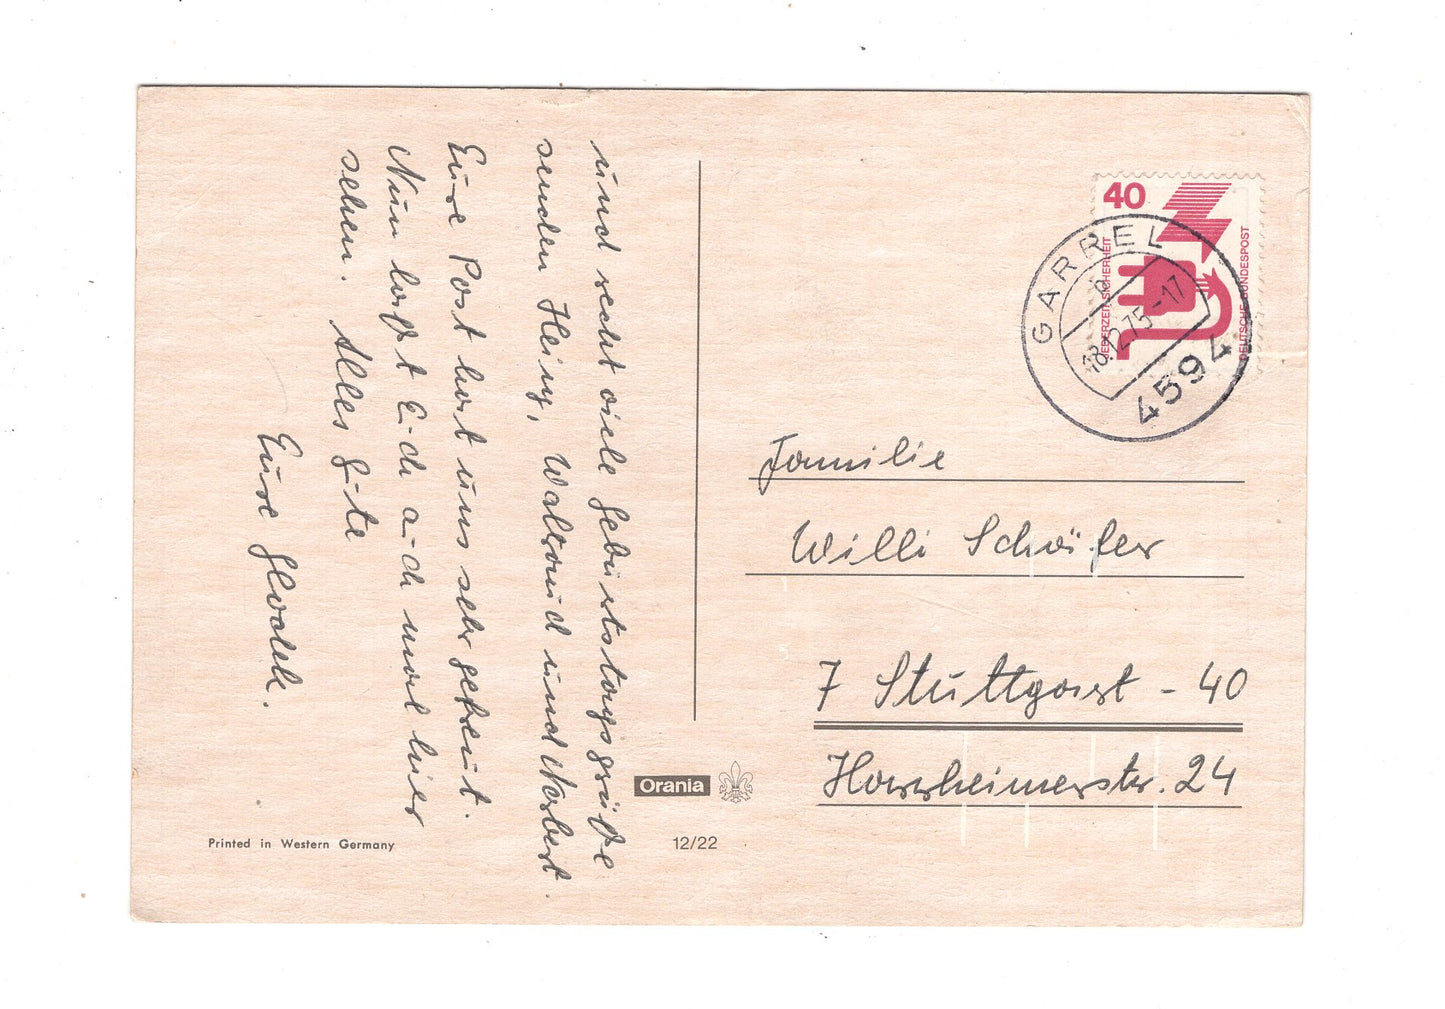 und recht viele Geburtstagsgrüße
senden Heiny, Waltraud und Norbert.
Eure Post hat uns sehr gefreut.
Nun laßt Euch auch mal hier
sehen. Alles Gute
Eure
40
JEDERZEIT SICHERHEIT
DEUTSCHE BUNDESPOST
GARREL
18.12.75-17
4594
Familie
Willi Schäfer
7 Stuttgart-40
24
Orania
12/22
Printed in Western Germany